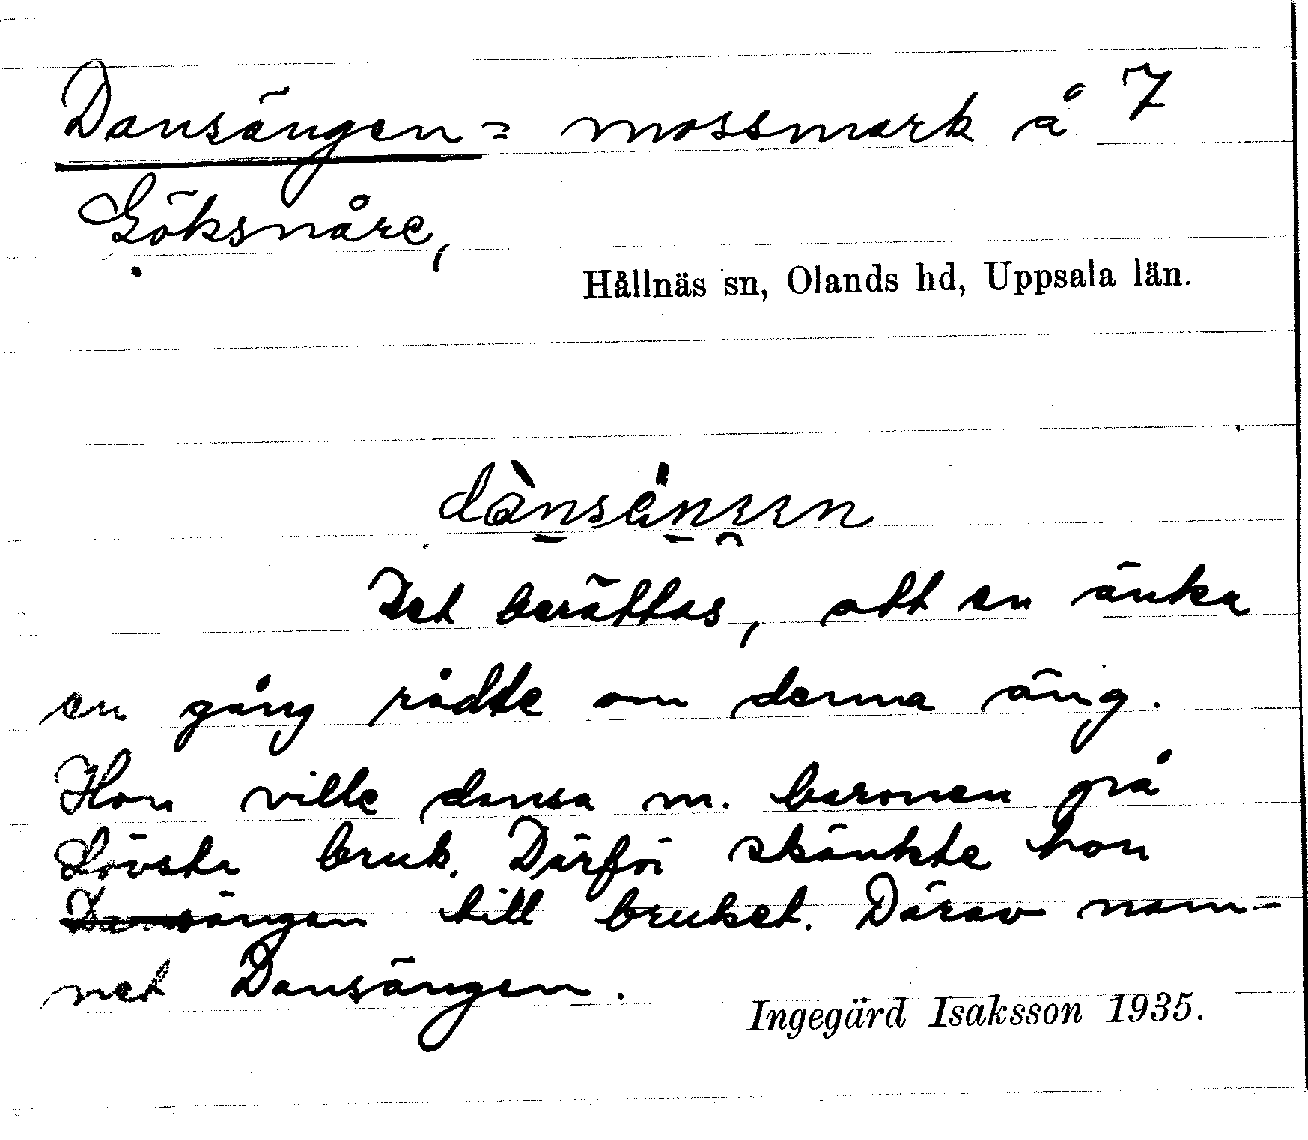 Dansängen = mossmark å 7
Göksnåre,
Hållnäs sn, Olands hd, Uppsala län.
Det berättas, att en änka
en gång rådde om denna äng.
Hon ville dansa m. baronen på
Lövsta bruk. Därför skänkte hon
ängen till bruket. Därav nam-
net Dansängen.
Ingegärd Isaksson 1935.